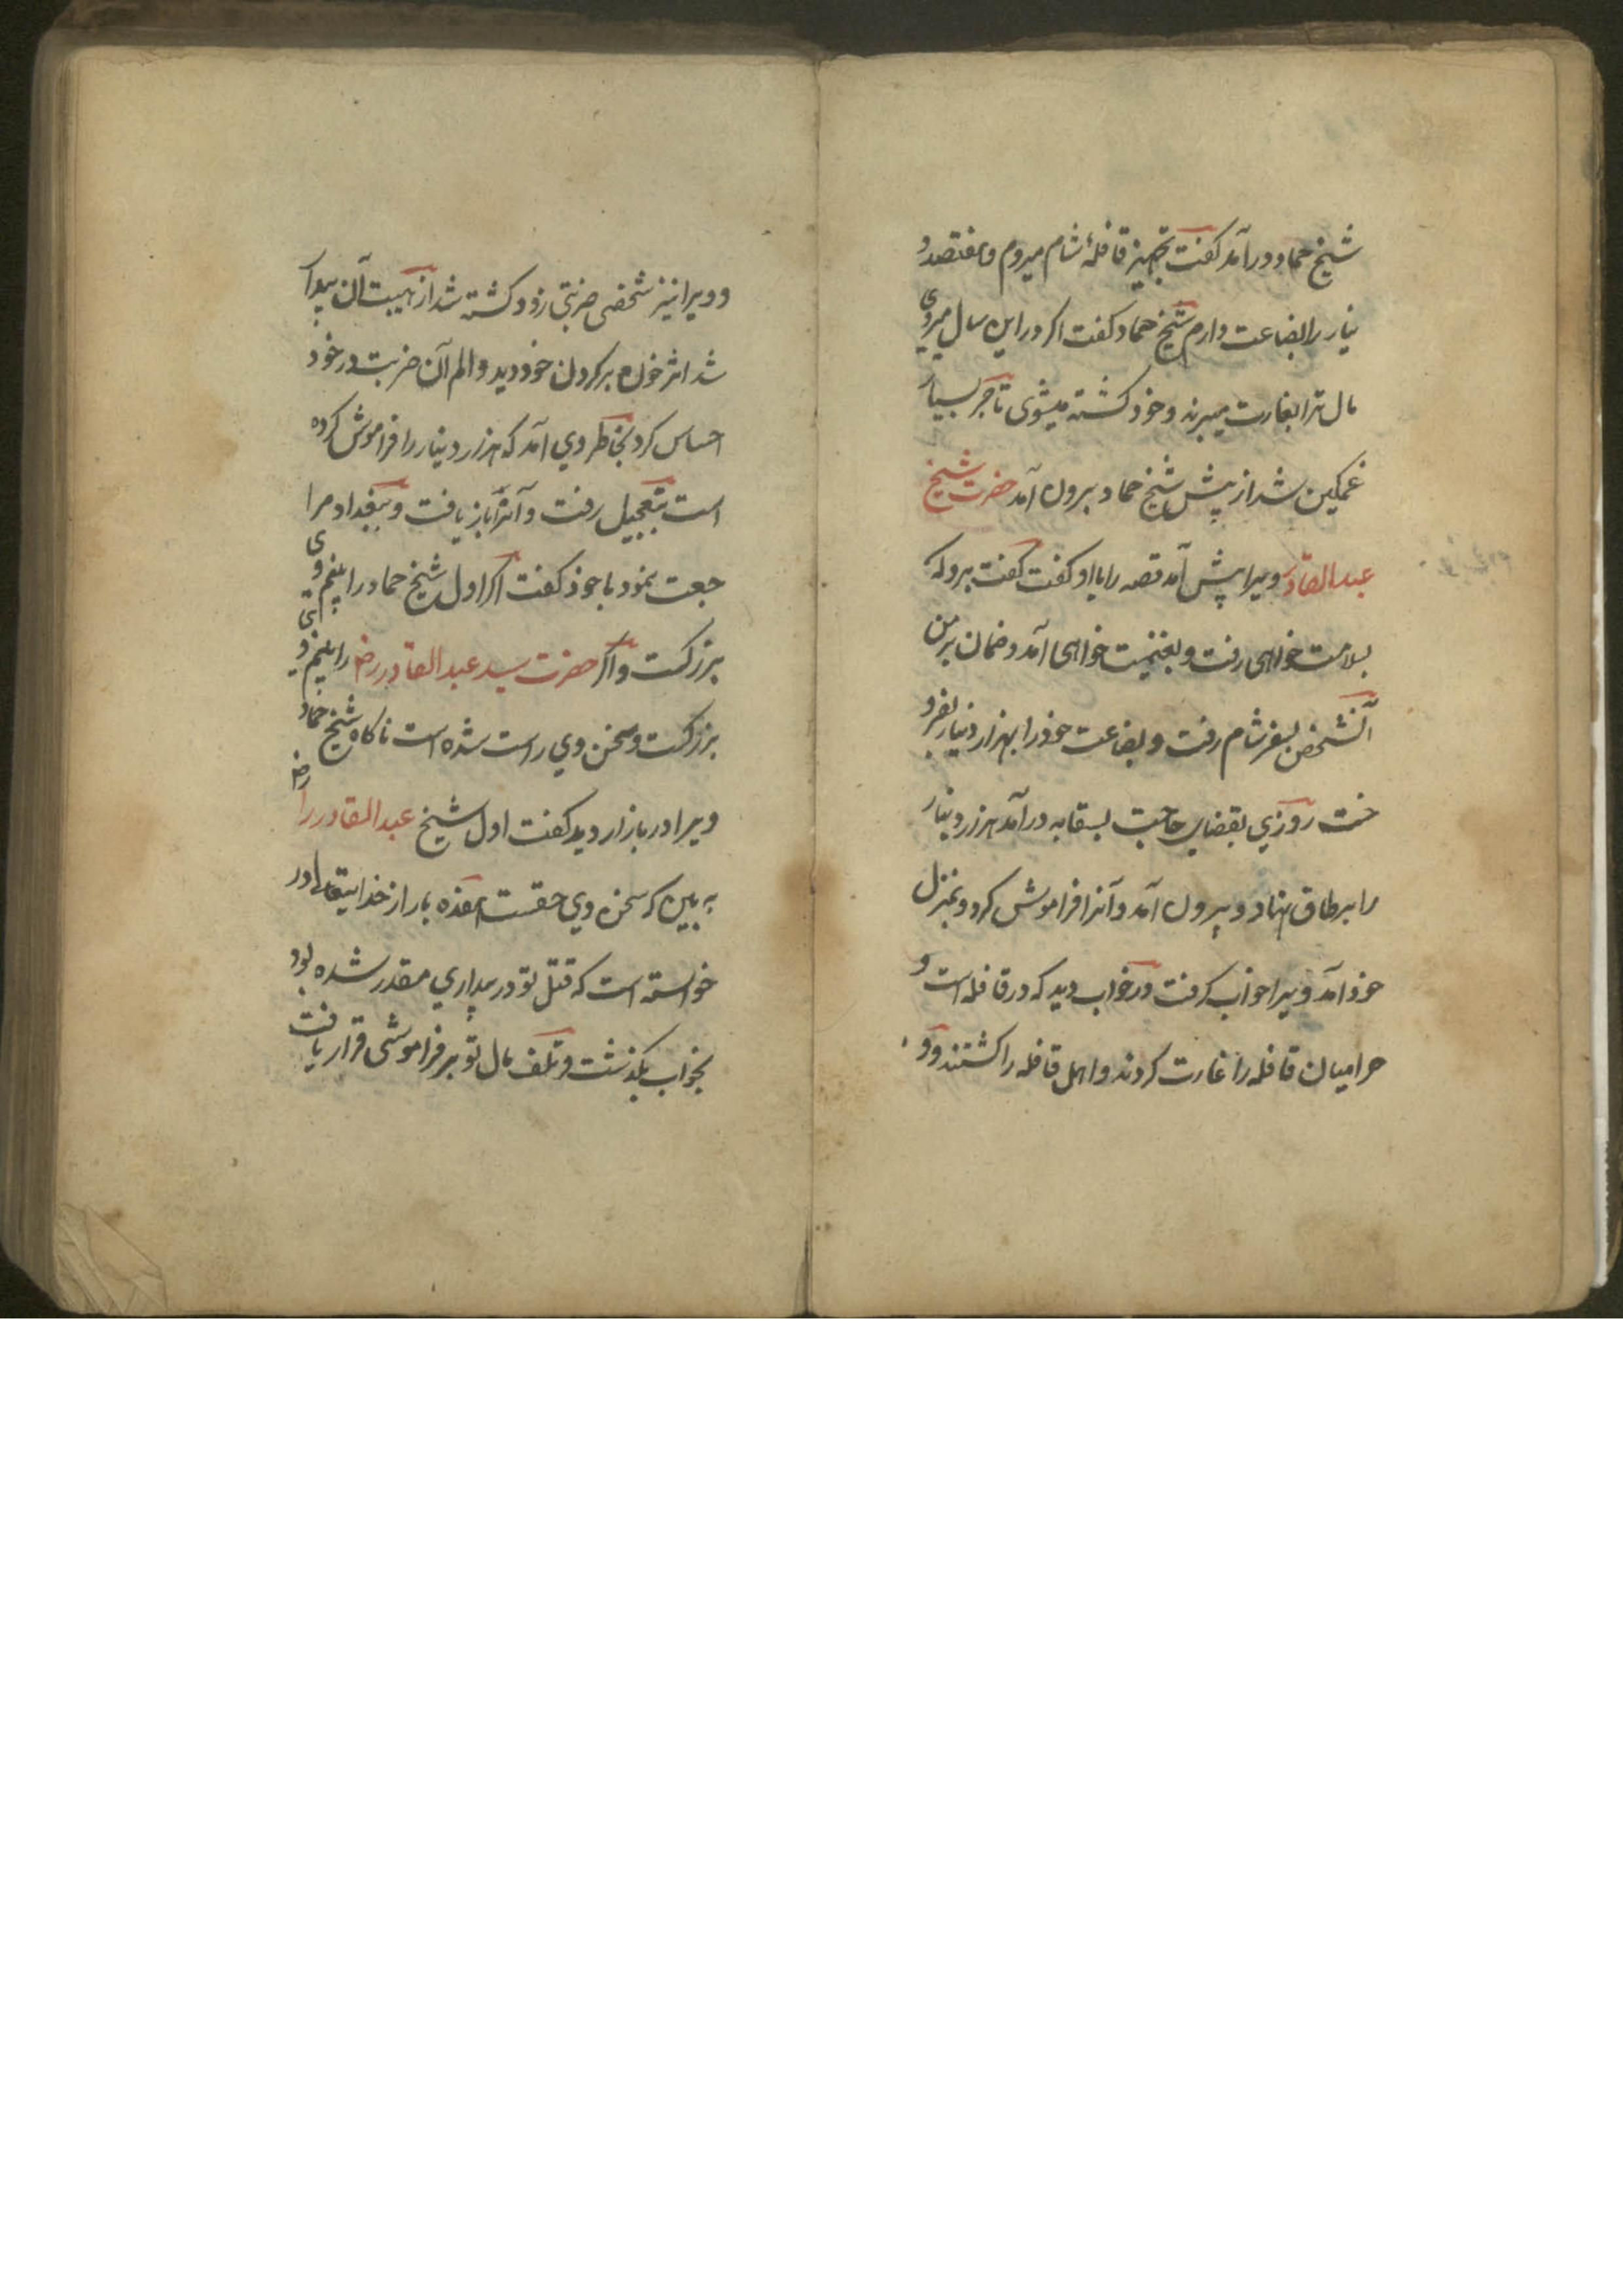 شیخ حماد درآمد کفت تجهیز قافلهٔ شام میروم و هفتصد د
ینار را بضاعت دارم شیخ حماد کفت اکر در این سال میروی
مال ترا بغارت میبرند و خود کشته میشوی تاجر بسیار
غمکین شد از پیش شیخ حماد بیرون آمد حضرت شیخ
عبدالقادر ویرا پیش آمد قصه را با او کفت کفت برو که
بسلامت خواهی رفت و بغنیمت خواهی آمد و ضمان بر من
آنشخص بسفر شام رفت و بضاعت خود را بهزار دینار بفرو
خت روزی بقضای حاجت بسقایه درآمد هزار دینار
را بر طاق نهاد و بیرون آمد و آنرا فراموش کرد و بمنزل
خود آمد ویرا خواب کرفت در خواب دید که در قافله است و
حرامیان قافله را غارت کردند و اهل قافله را کشتند و
و ویرا نیز شخصی ضربتی زد و کشته شد از هیبت آن بیدار
شد اثر خون بر کردن خود دید و الم آن ضربت در خود
احساس کرد بخاطر وی آمد که هزار دینار را فراموش کرده
است بتعجیل رفت و آنرا باز یافت و ببغداد مرا
جعت نمود با خود کفت اکر اول شیخ حماد را بینم وی
بزرکست و اکر حضرت سید عبدالقادر رض را بینم وی
بزرکست و سخن وی راست شده است ناکاه شیخ حماد
ویرا در بازار دید کفت اول شیخ عبدالقادر را رض
به بین که سخن وی حقست هفده بار از خدایتعالی در
خواسته است که قتل تو در بیداری مقدر شده بود
بخواب بکذشت و تلف مال تو بر فراموشی قرار یافت